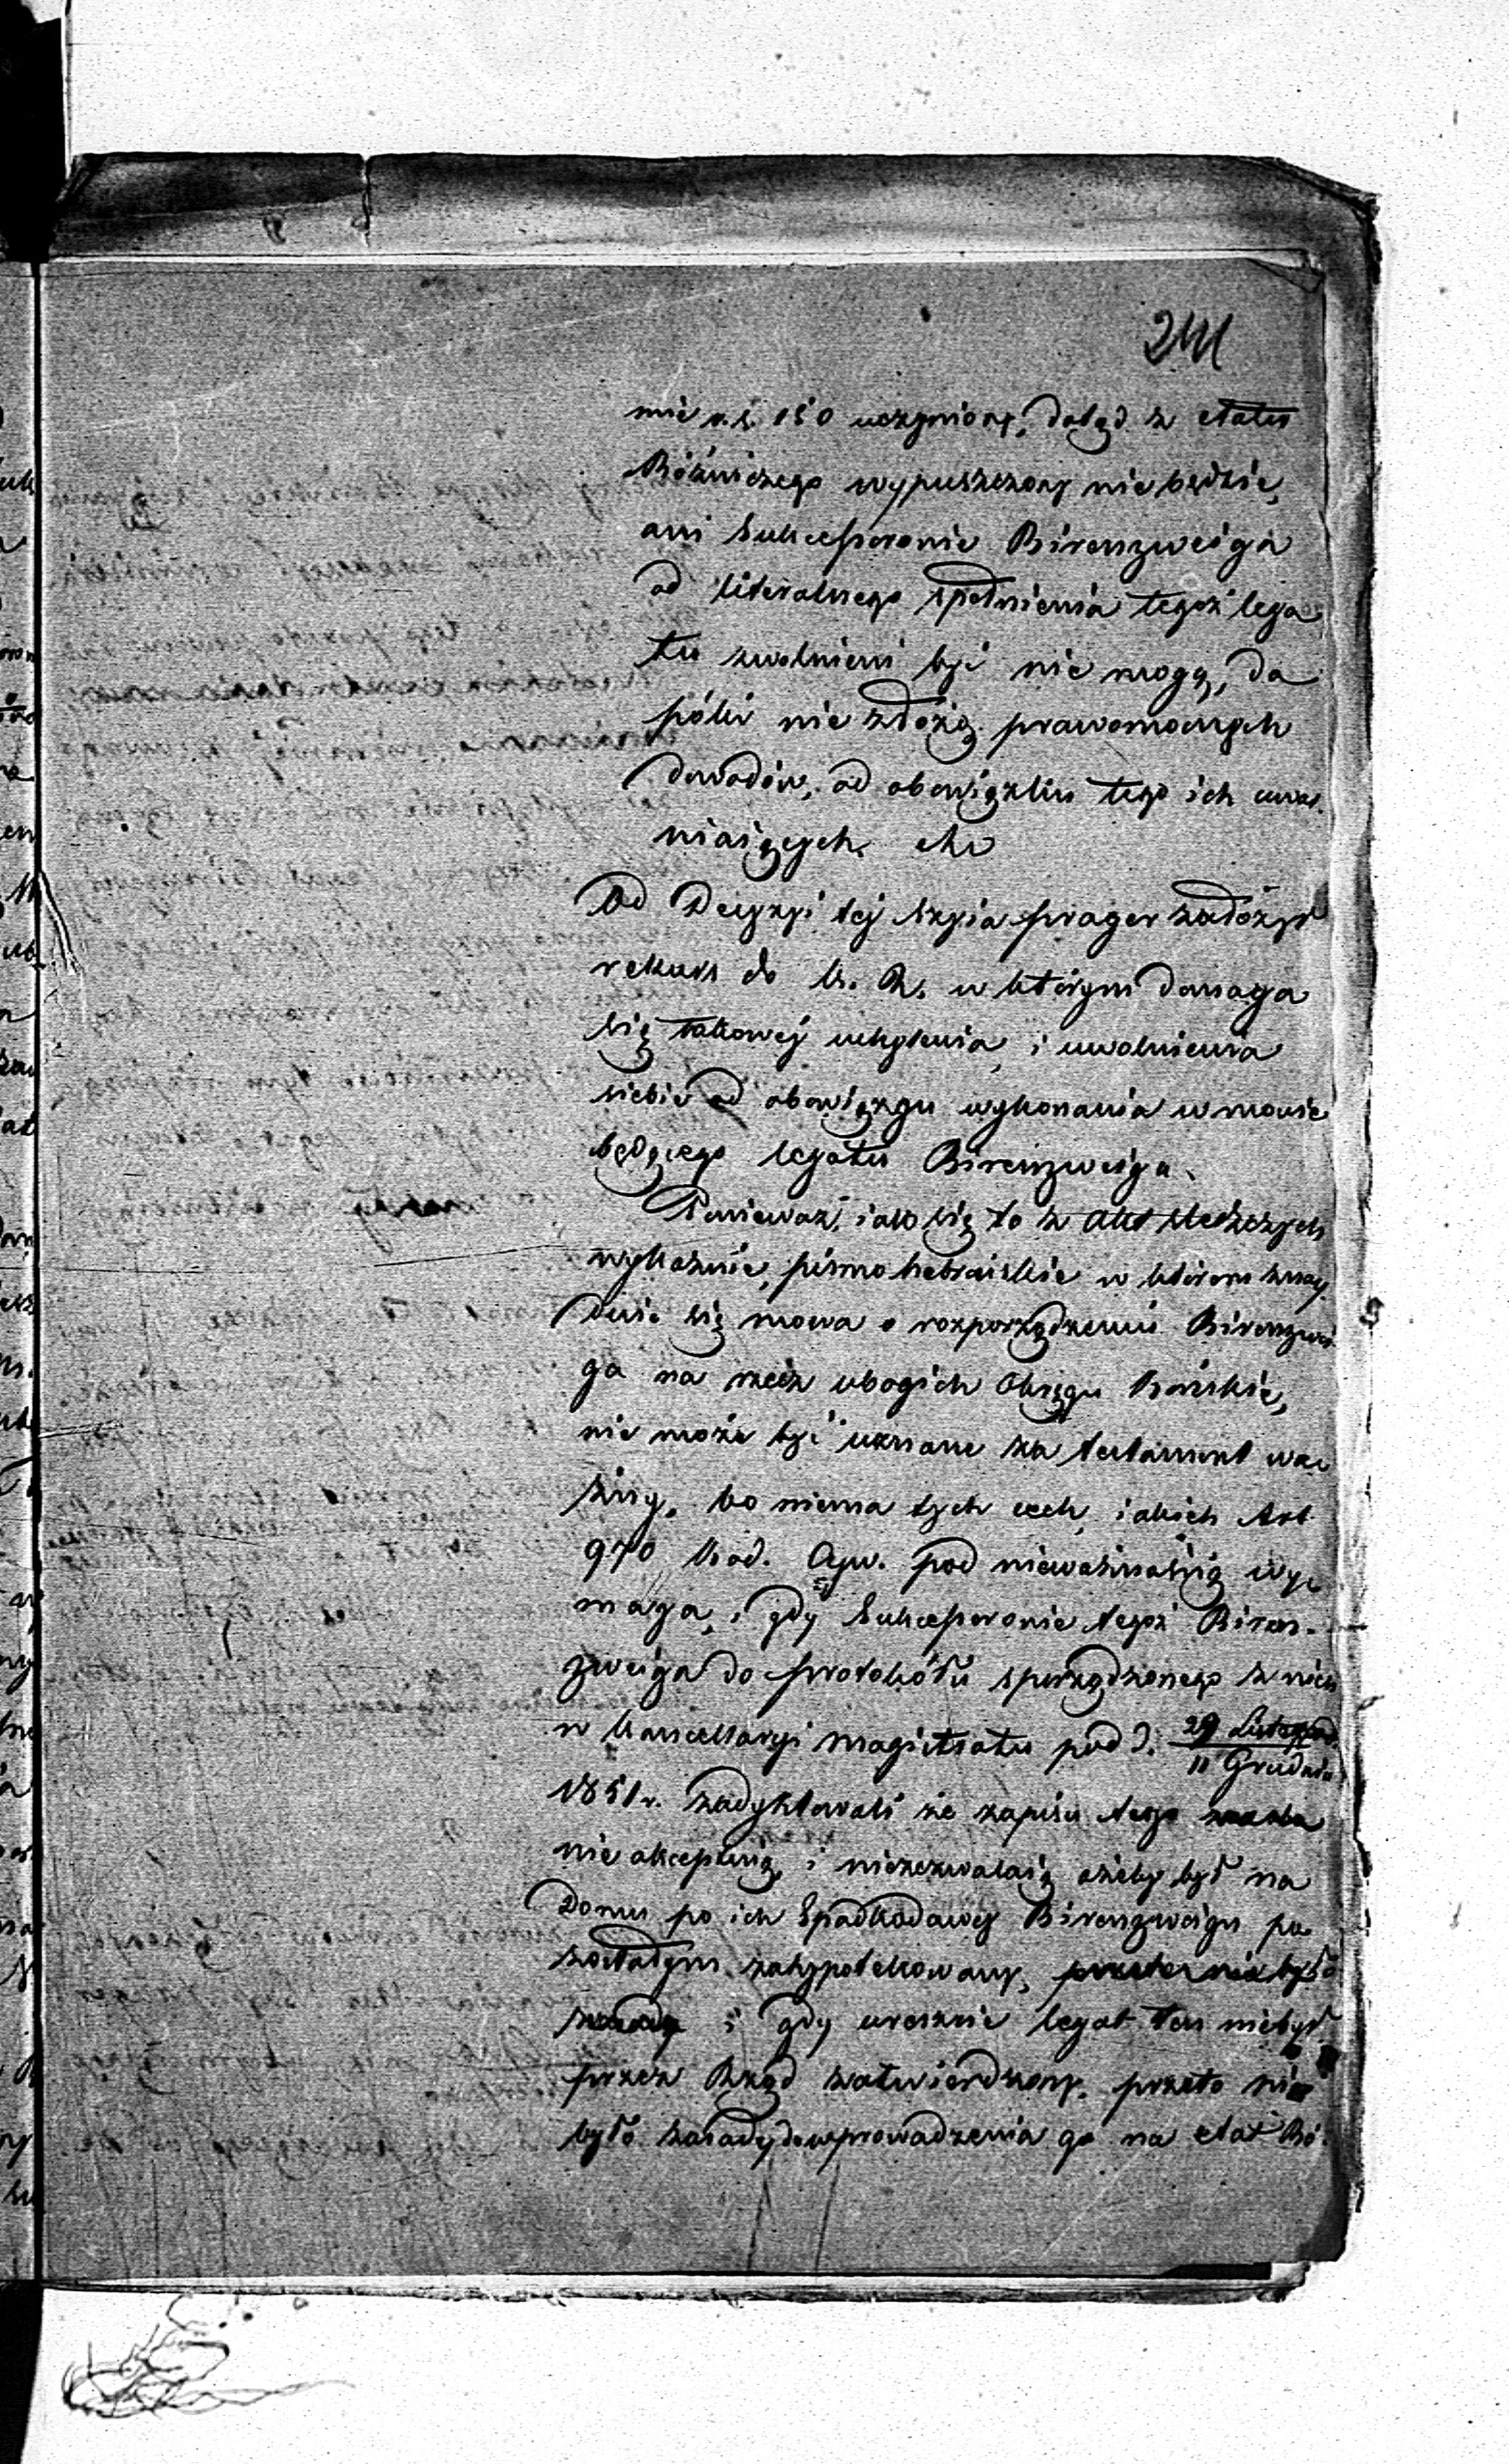 241
mie r.s. 150 uczyniony, dotąd z etatu
Bóżniczego wypuszczony nie będzie,
ani Sukcessorowie Birenzweiga
od literalnego spełnienia tegoż lega
tu zwolnieni być nie mogą, do
póki nie złożą prawomocnych
dowodów, od obowiązku tego ich uwal
niaiących. etc
Od Decyzyi tej Szyia Prager założył
rekurs do K. R. w którym domaga
się takowej uchylenia, i uwolnienia
siebie od obowiązku wykonania w mowie
będącego legatu Birenzweiga.
Ponieważ, iak się to z akt bieżących
wykaznie, pismo hebraiskie w którem znay
duie się mowa o rozporządzeniu Birenzwei
ga na rzecz ubogich Okręgu Bóżnic,
nie może być uznane za testament wa
żny, bo niema tych cech, iakich Art
970 Kod. Cyw. pod nieważnością wy
maga, i gdy Sukcessorowie tegoż Biren-
zweiga do protokółu sporządzonego z niemi
w Kancellaryi magistratu pod d. 29 Listopad
11 Grudnia
1851 r. zadyktowali że zapisu tego
nie akceptuią, i niezezwalaią ażeby był na
Domu po ich Spadkodawcy Birenzweigu po
zostałym zahypotekowany,
i gdy wreszcie legat ten niebył
przez Rząd zatwierdzony, przeto nie
było zasady do wprowadzenia go na etat Bó